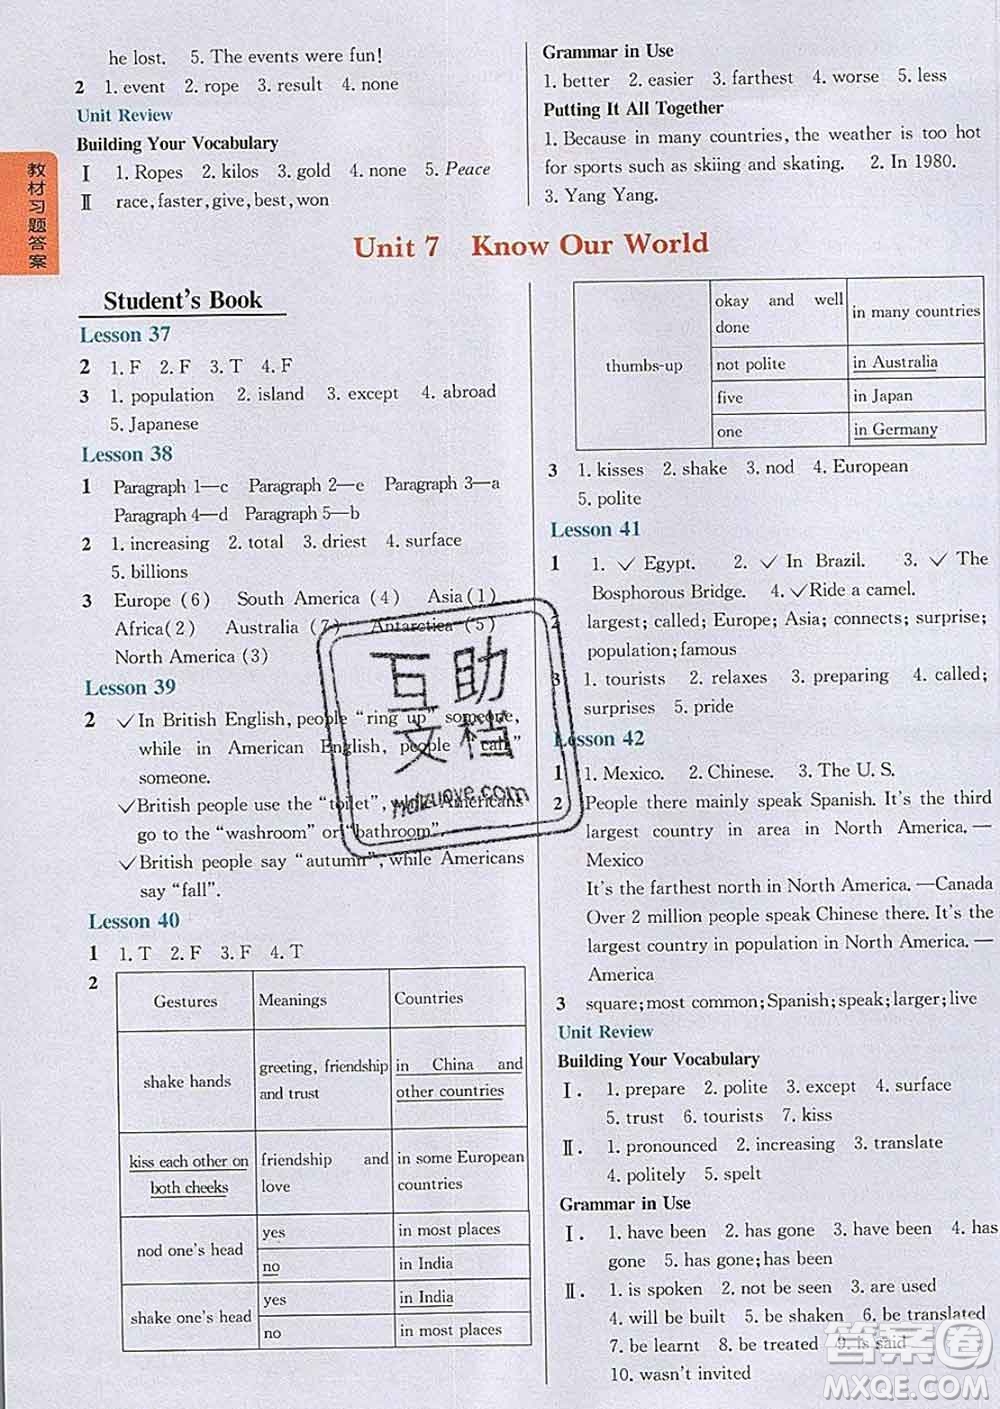 he lost.    5. The events were fun!
2  1. event  2. rope  3. result  4. none
Unit Review
Building Your Vocabulary
Ⅰ  1. Ropes  2. kilos  3. gold  4. none  5. Peace
Ⅱ  race, faster, give, best, won
Grammar in Use
1. better  2. easier  3. farthest  4. worse  5. less
Putting It All Together
1. Because in many countries, the weather is too hot
for sports such as skiing and skating.  2. In 1980.
3. Yang Yang.
教材习题答案
Unit 7  Know Our World
Student's Book
Lesson 37
2  1. F  2. F  3. T  4. F
3  1. population  2. island  3. except  4. abroad
5. Japanese
Lesson 38
1  Paragraph 1—c  Paragraph 2—e  Paragraph 3—a
Paragraph 4—d  Paragraph 5—b
2  1. increasing  2. total  3. driest  4. surface
5. billions
3  Europe (6)  South America (4)  Asia(1)
Africa(2)  Australia (7)  Antarctica (5)
North America (3)
Lesson 39
2  ✓In British English, people "ring up" someone,
while in American English, people "call"
someone.
✓British people use the "toilet", while Americans
go to the "washroom" or "bathroom".
✓British people say "autumn", while Americans
say "fall".
Lesson 40
1  1. T  2. F  3. F  4. T
2
Gestures  Meanings  Countries
shake hands  greeting, friendship and trust  in China and other countries
kiss each other on both cheeks  friendship and love  in some European countries
nod one's head  yes  in most places
no  in India
shake one's head  yes  in India
no  in most places
thumbs-up  okay and well done  in many countries
not polite  in Australia
five  in Japan
one  in Germany
3  1. kisses  2. shake  3. nod  4. European
5. polite
Lesson 41
1  1. ✓Egypt.  2. ✓In Brazil.  3. ✓The
Bosphorous Bridge.  4. ✓Ride a camel.
2  largest; called; Europe; Asia; connects; surprise;
population; famous
3  1. tourists  2. relaxes  3. preparing  4. called;
surprises  5. pride
Lesson 42
1  1. Mexico.  2. Chinese.  3. The U. S.
2  People there mainly speak Spanish. It's the third
largest country in area in North America. —
Mexico
It's the farthest north in North America. —Canada
Over 2 million people speak Chinese there. It's the
largest country in population in North America. —
America
3  square; most common; Spanish; speak; larger; live
Unit Review
Building Your Vocabulary
Ⅰ.  1. prepare  2. polite  3. except  4. surface
5. trust  6. tourists  7. kiss
Ⅱ.  1. pronounced  2. increasing  3. translate
4. politely  5. spelt
Grammar in Use
Ⅰ.  1. have been  2. has gone  3. have been  4. has
gone  5. has gone; has been
Ⅱ.  1. is spoken  2. not be seen  3. are used
4. will be built  5. be shaken  6. be translated
7. be learnt  8. be treated  9. is said
10. wasn't invited
互助
文档
Hdzuoye.com
答案圈
MXQE.COM